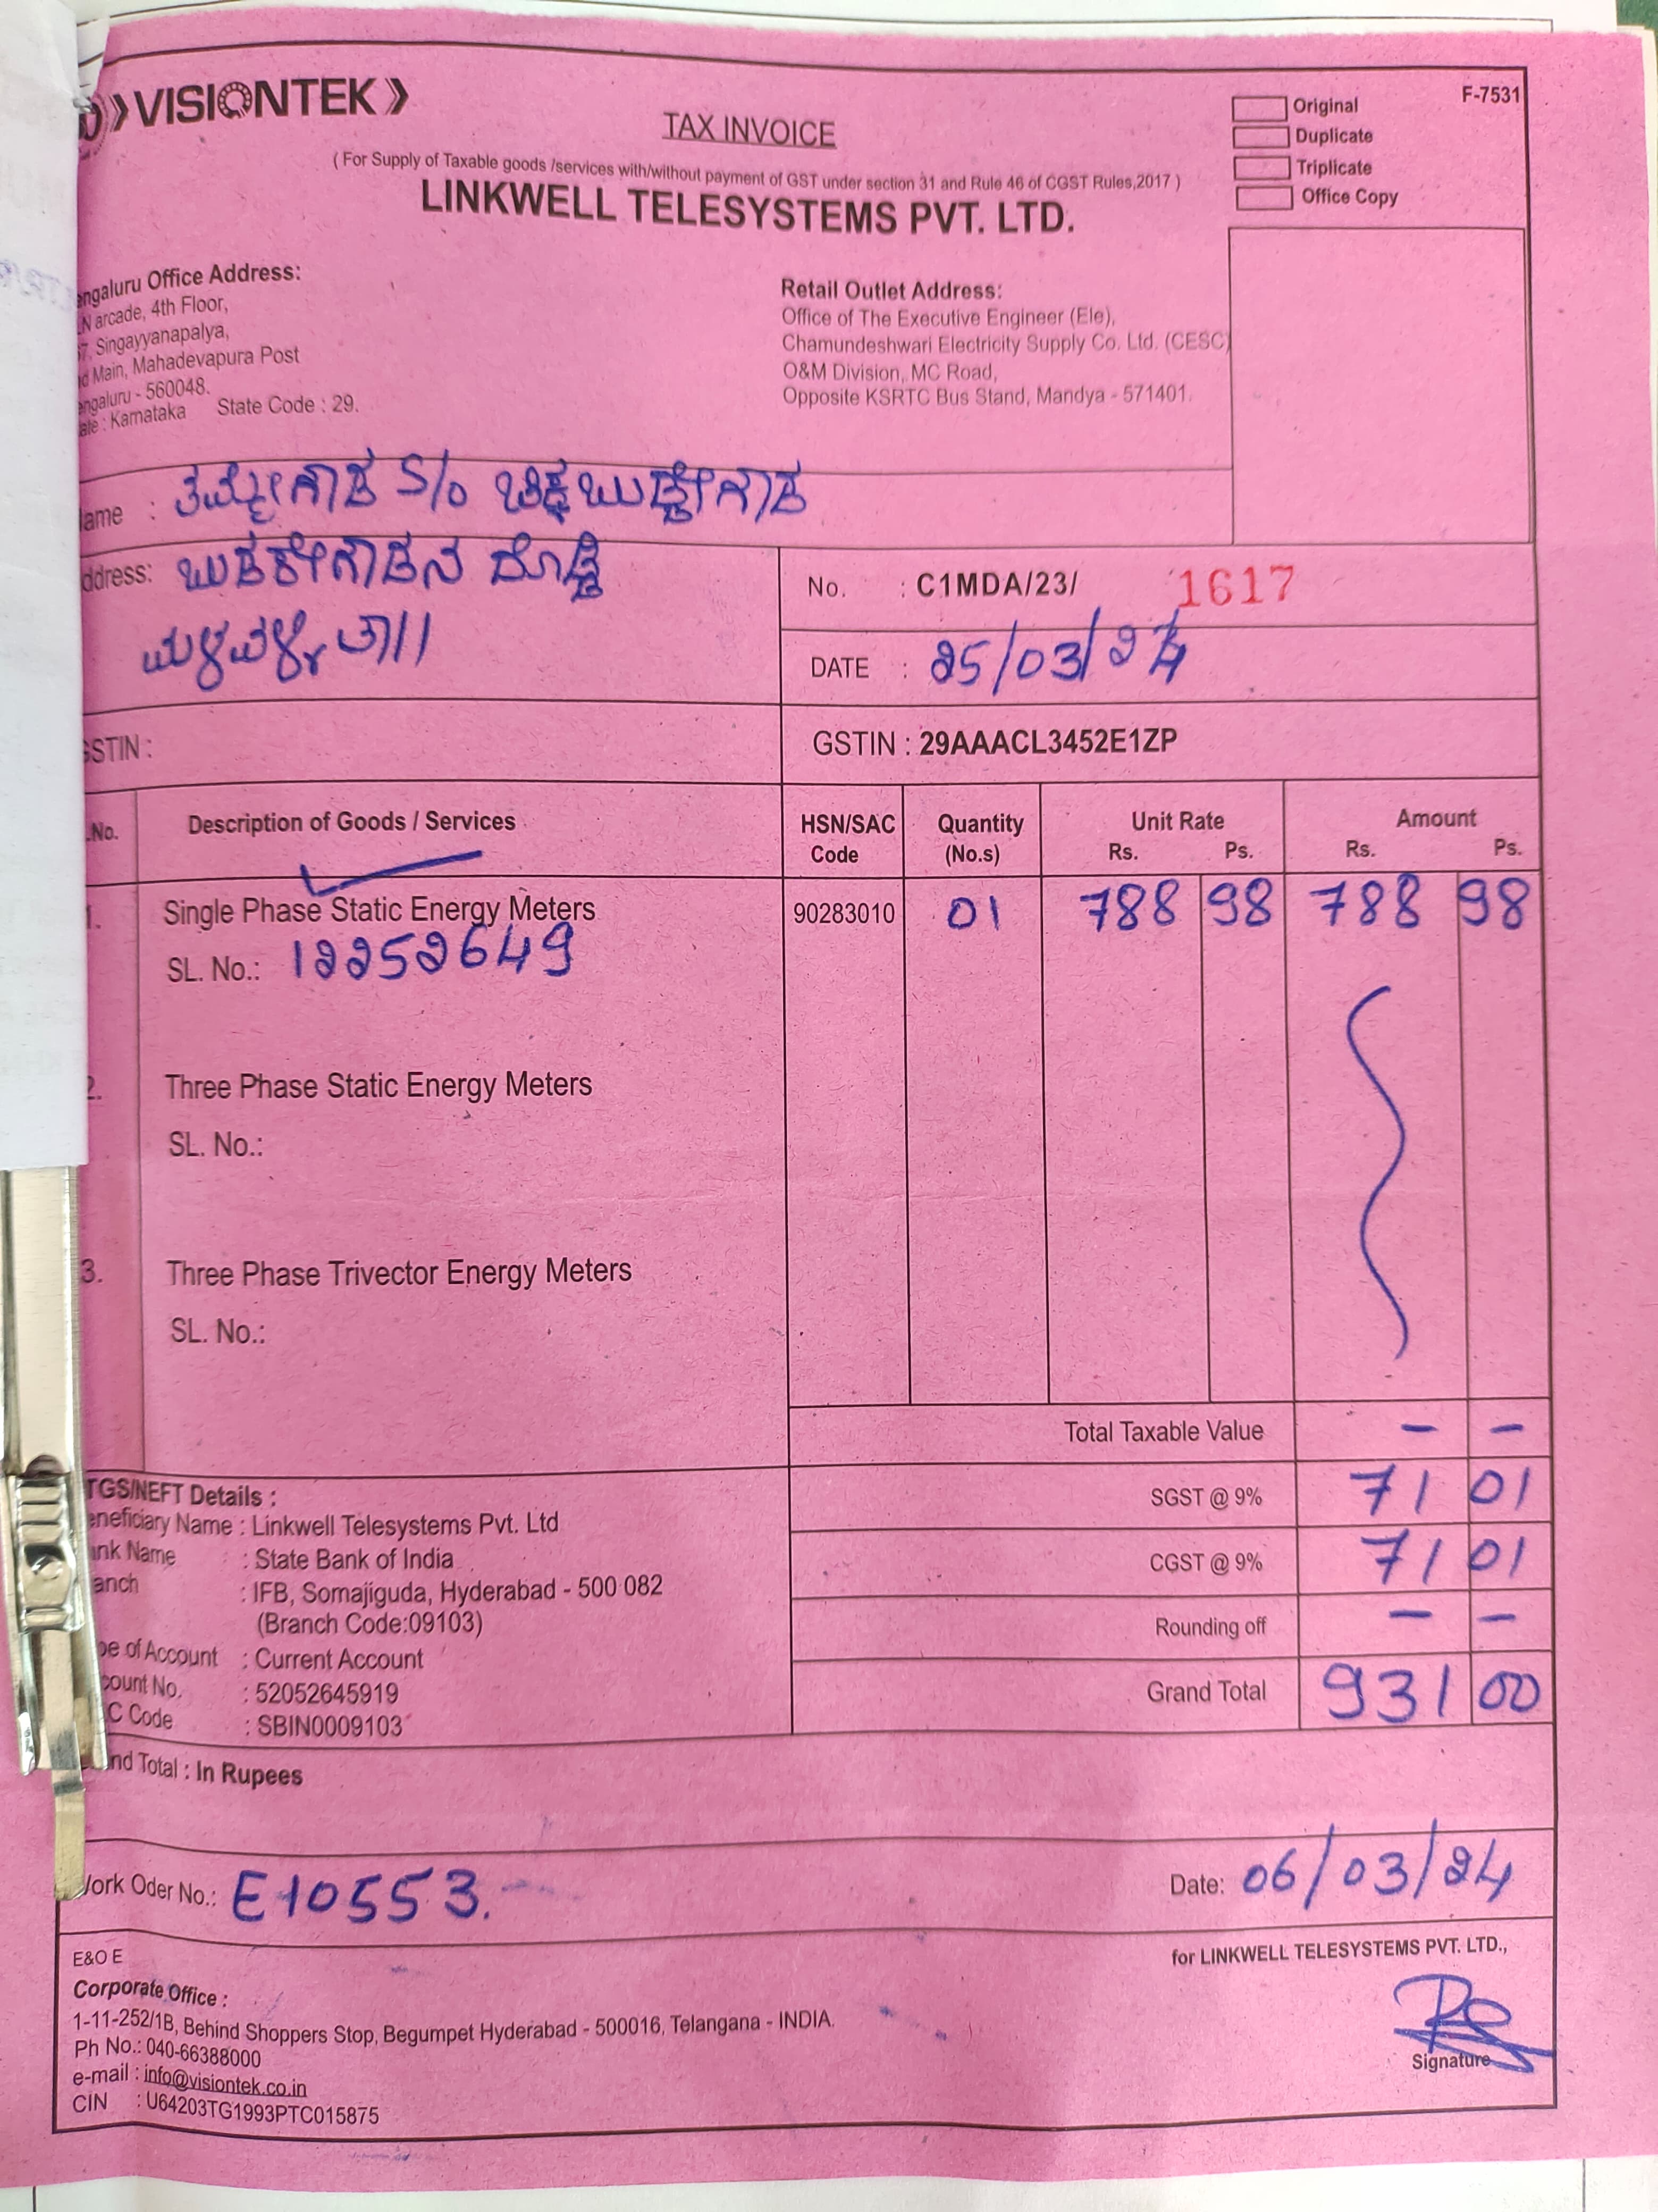 VISIONTEK
F-7531
TAX INVOICE
Original
Duplicate
Triplicate
Office Copy
( For Supply of Taxable goods /services with/without payment of GST under section 31 and Rule 46 of CGST Rules,2017 )
LINKWELL TELESYSTEMS PVT. LTD.
engaluru Office Address:
N arcade, 4th Floor,
7, Singayyanapalya,
d Main, Mahadevapura Post
engaluru - 560048.
ate : Karnataka State Code : 29.
Retail Outlet Address:
Office of The Executive Engineer (Ele),
Chamundeshwari Electricity Supply Co. Ltd. (CESC)
O&M Division, MC Road,
Opposite KSRTC Bus Stand, Mandya - 571401.
ame : ತಮ್ಮೇಗೌಡ S/o ಚಿಕ್ಕಬುಡ್ಡೇಗೌಡ
ddress: ದೊಡ್ಡಿ
ಮಳವಳ್ಳಿ ತಾ//
No. : C1MDA/23/ 1617
DATE : 25/03/24
GSTIN :
GSTIN : 29AAACL3452E1ZP
.No. Description of Goods / Services HSN/SAC Code Quantity (No.s) Unit Rate Rs. Ps. Amount Rs. Ps.
1. Single Phase Static Energy Meters 90283010 01 788 98 788 98
SL. No.: 12252649
2. Three Phase Static Energy Meters
SL. No.:
3. Three Phase Trivector Energy Meters
SL. No.:
Total Taxable Value - -
SGST @ 9% 71 01
CGST @ 9% 71 01
Rounding off - -
Grand Total 931 00
TGS/NEFT Details :
eneficiary Name : Linkwell Telesystems Pvt. Ltd
ank Name : State Bank of India
anch : IFB, Somajiguda, Hyderabad - 500 082
(Branch Code:09103)
pe of Account : Current Account
count No. : 52052645919
C Code : SBIN0009103
nd Total : In Rupees
Work Oder No.: E10553.
Date: 06/03/24
E&O E
Corporate Office :
1-11-252/1B, Behind Shoppers Stop, Begumpet Hyderabad - 500016, Telangana - INDIA.
Ph No.: 040-66388000
e-mail : info@visiontek.co.in
CIN : U64203TG1993PTC015875
for LINKWELL TELESYSTEMS PVT. LTD.,
Signature